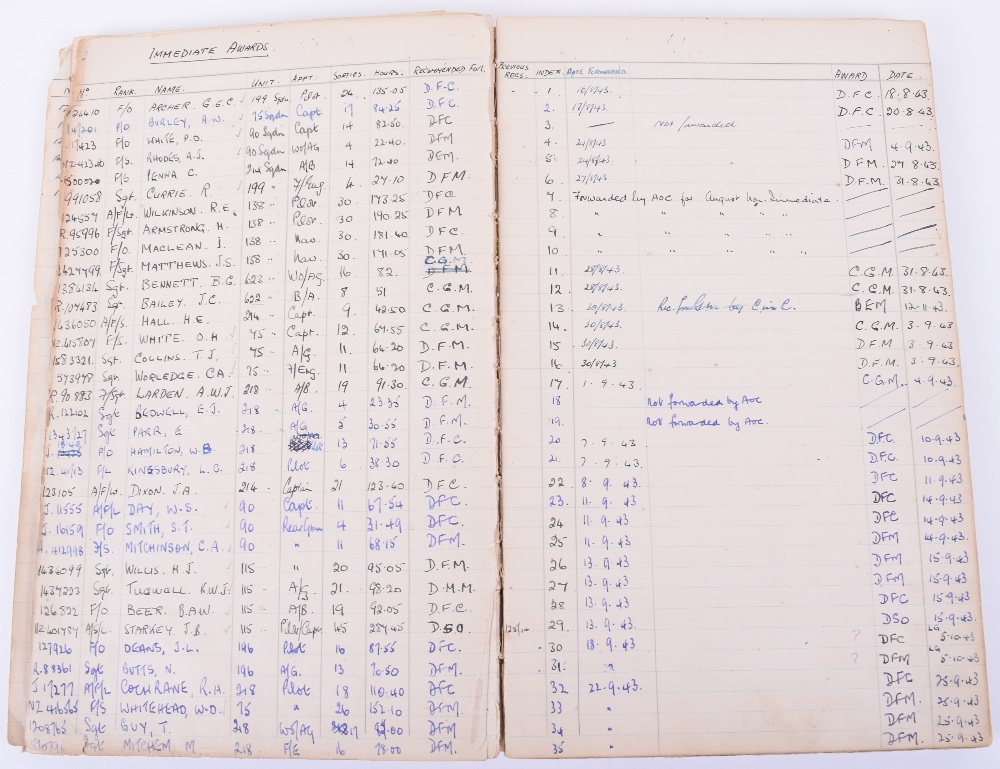 IMMEDIATE AWARDS.
No RANK. NAME. UNIT. APPT. SORTIES. HOURS. RECOMMENDED FOR.
F/O ARCHER. G.E.C. 199 Sqn. Pilot. 24 135.05 D.F.C.
P/O BURLEY, A.W. 75 Sqdn Capt 17 84.25 D.F.C.
F/O WHITE, P.O. 90 Sqdn Capt 14 82.50 DFC
F/S. RHODES, A.J. 90 Sqdn Wo/AG 4 22.40 DFM
F/S PENNA C. 214 Sqdn A/B 14 72.40 BEM.
991058 Sgt. CURRIE. R 199 " F/Eng 4 27.10 DFM
124557 A/F/L. WILKINSON. R.E. 138 " Pilot. 30 173.25 DFC.
R.95996 F/Sgt. ARMSTRONG. H. 138 " Pilot. 30 190.25 DFM
125300 F/O. MACLEAN. J. 138 " Nav. 30 181.40 DFC.
1424499 F/Sgt. MATTHEWS. J.S. 138 " Nav. 30 171.05 DFM
1384134 Sgt. BENNETT. B.G. 623 " Wo/AG. 16 82. C.G.M. DFM
R.107483 Sgt. BAILEY. J.C. 622 " B/A. 8 51 C.G.M.
1436050 A/F/S. HALL. H.E. 214 " Capt. 9 42.50 C.G.M.
415807 F/S. WHITE. O.H 75 " Capt. 12 64.55 C.G.M.
1583321. Sgt. COLLINS. T.J. 75 " A/G. 11 64.20 D.F.M.
573998 Sgt. WORLEDGE. C.A. 75 " F/Eng. 11 64.20 D.F.M.
R.90883 F/Sgt. LARDEN. A.W.J. 218 " A/B 19 91.30 C.G.M.
R.122102 Sgt BEDWELL, E.J. 218 " A/G. 4 23.35 D.F.M.
Sgt PARR, E 218 " A/G. 5 20.55 D.F.M.
P/O HAMILTON, W.B 218 13 71.55 D.F.C.
F/L KINGSBURY, L.G. 218 Pilot 6 38.30 D.F.C.
123105 A/F/L. DIXON. J.A. 214 " Captain 21 123.40 DFC.
J.11555 A/F/L DAY, W.S. 90 Capt. 11 67.54 DFC.
J.16159 F/O SMITH, S.T. 90 Rear Gunn 4 31.49 DFC.
A.412998 F/S. MITCHINSON, C.A. 90 " 11 68.15 DFM.
1436099 Sgt. WILLIS. H.J. 115 " " 20 95.05 D.F.M.
1437223 Sgt. TUGWELL. K.W.J. 115 " A/G 21. 98.20 D.M.M.
126822 F/O BEER. B.A.W. 115 " A/B. 19 92.05 D.F.C.
NZ.401787 A/S/L. STARKEY. J.B. 115 " Pilot/Capt. 45 287.45 DSO.
127926 F/O DEANS, J.L. 196 Pilot 16 87.55 DFC.
R.88361 Sgt BUTTS, N. 196 A/G. 13 70.50 DFM.
J.17277 A/F/L COCHRANE, R.H. 218 Pilot 18 110.40 DFC
NZ 416565 F/S WHITEHEAD, W.D. 75 " 26 152.10 DFM
1208765 Sgt GUY, T. 218 Wo/AG 17 92.00 DFM
Sgt MITCHEM, M. 218 F/E 16 78.00 DFM.
PREVIOUS RECS. INDEX. DATE FORWARDED. AWARD DATE.
1. 10/8/43. D.F.C. 18.8.43.
2. 17/8/43. D.F.C. 20.8.43.
3. — Not forwarded
4. 21/8/43. DFM 4.9.43.
5. 24/8/43. D.F.M. 27.8.43.
6. 27/8/43. D.F.M. 31.8.43.
7 Forwarded by AOC for August Non. Immediate.
8. " " " "
9. " " " "
10. " " " "
11. 28/8/43. C.G.M. 31.8.43.
12. 28/8/43. C.G.M. 31.8.43.
13. 30/8/43. BEM 12.11.43.
14. 30/8/43. C.G.M. 3.9.43.
15. 30/8/43. DFM 3.9.43.
16. 30/8/43 D.F.M. 3.9.43.
17. 1.9.43. C.G.M. 4.9.43.
18 Not forwarded by AOC
19. Not forwarded by AOC.
20 7.9.43. DFC. 10.9.43
21. 7.9.43. DFC. 10.9.43
22 8.9.43. DFC 11.9.43
23. 11.9.43. DFC 14.9.43
24 11.9.43 DFC 14.9.43
25 11.9.43 DFM 14.9.43.
26 13.9.43 DFM 15.9.43
27 13.9.43 DFM 15.9.43
28 13.9.43 DFC 15.9.43
29. 13.9.43. DSO 15.9.43
30 18.9.43 ? DFC LG 5.10.43
31. " ? DFM LG 5.10.43
32 22.9.43. DFC 25.9.43
33 " DFM 25.9.43
34 " DFM 25.9.43
35 " DFM. 25.9.43